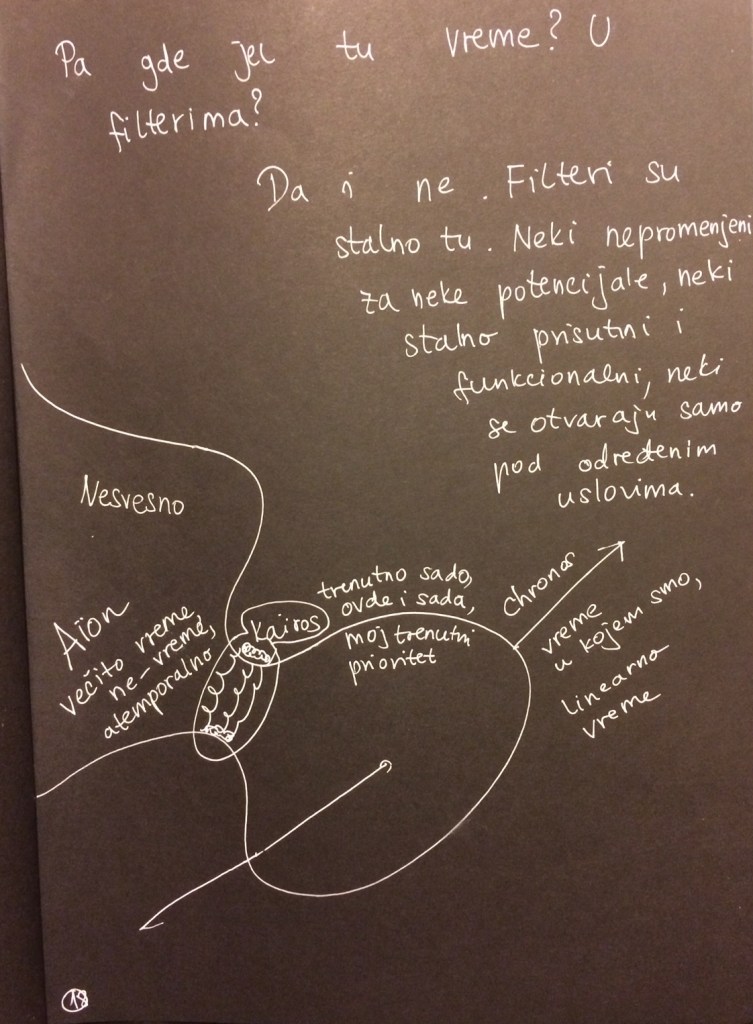 Pa gde jel tu vreme? U
filterima?
Da i ne. Filteri su
stalno tu. Neki nepromenjeni
za neke potencijale, neki
stalno prisutni i
funkcionalni, neki
se otvaraju samo
pod određenim
uslovima.
Nesvesno
Aïon
večito vreme,
ne-vreme,
atemporalno
Kairos
trenutno sado,
ovde i sada,
moj trenutni
prioritet
chronos
vreme
u kojem smo,
linearno
vreme